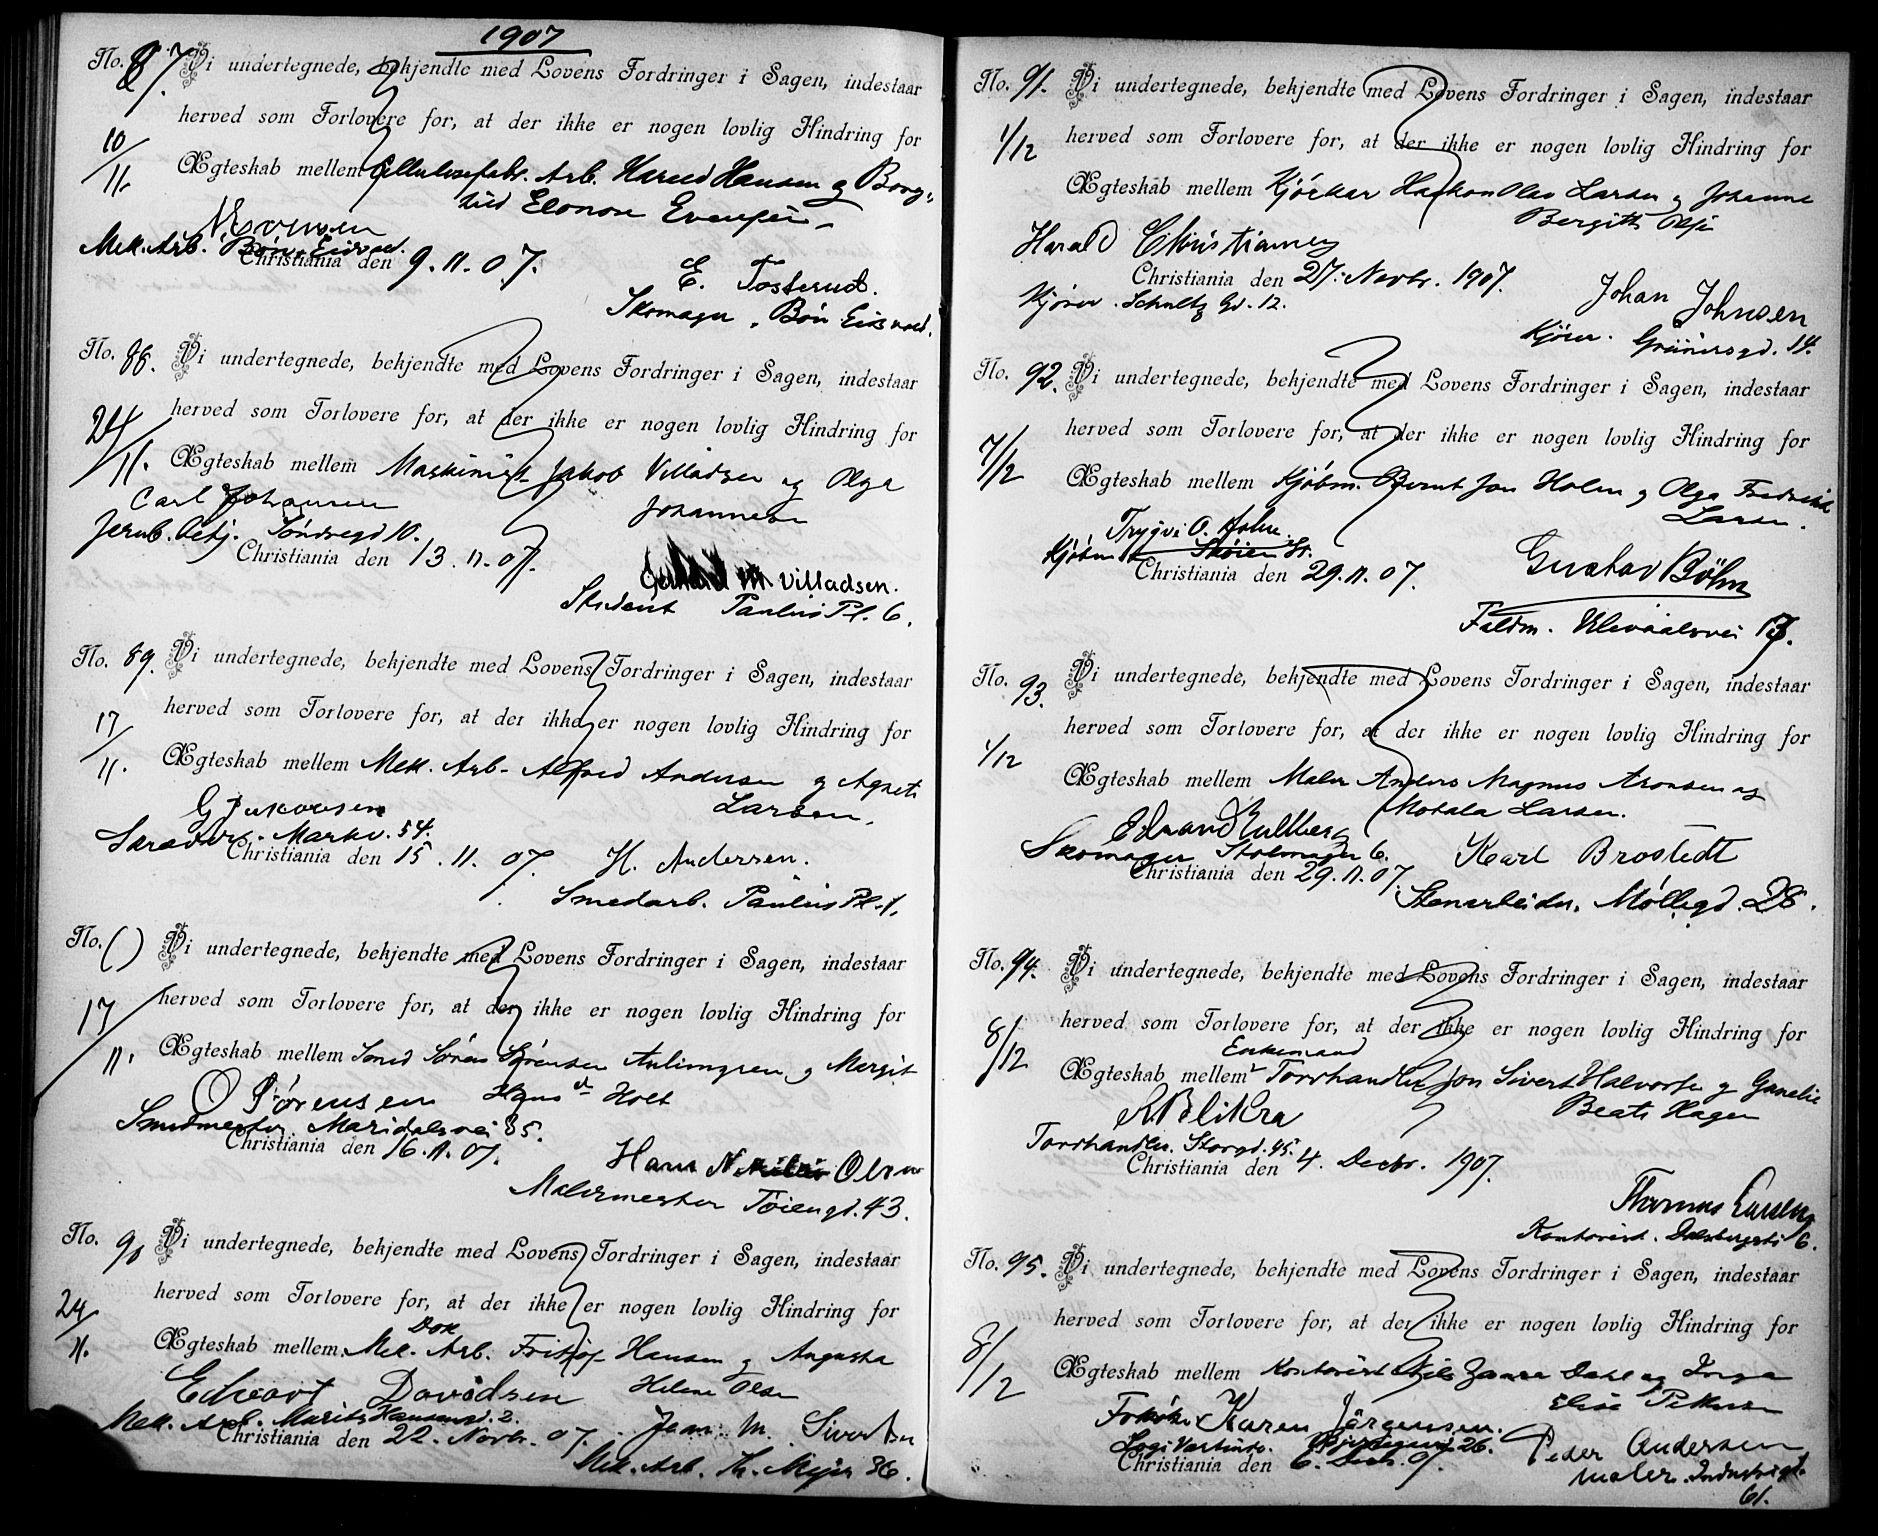 1907
No. 87. Vi undertegnede, bekjendte med Lovens Fordringer i Sagen, indestaar
herved som Forlovere for, at der ikke er nogen lovlig Hindring for
10/11. Ægteskab mellem Cellulosefabr. Arb. Harald Hansen og Borg-
hild Elonore Evensen
N Evensen
Mek. Arb. Bøn. Eidsvol.
Christiania den 9. 11. 07.
E. Tosterud.
Skomager, Bøn Eidsvold.
No. 88. Vi undertegnede, bekjendte med Lovens Fordringer i Sagen, indestaar
herved som Forlovere for, at der ikke er nogen lovlig Hindring for
24/11. Ægteskab mellem Maskinist Jakob Villadsen og Olga
Johannesen
Carl Johansen
Jernb. Betj. Søndregd 10.
Christiania den 13. 11. 07.
M Villadsen.
Student Paulus Pl. 6.
No. 89. Vi undertegnede, bekjendte med Lovens Fordringer i Sagen, indestaar
herved som Forlovere for, at der ikke er nogen lovlig Hindring for
17/11. Ægteskab mellem Mek. Arb. Alfred Andersen og Agnete
Larsen.
G Jakobsen
Markv. 54.
Christiania den 15. 11. 07.
H. Andersen.
Smedarb. Paulus Pl. 1.
No. ( ) Vi undertegnede, bekjendte med Lovens Fordringer i Sagen, indestaar
herved som Forlovere for, at der ikke er nogen lovlig Hindring for
17/11. Ægteskab mellem Smed Søren Sørensen og Margit
Holt
O Sörensen
Smedmester Maridalsvei 35.
Christiania den 16. 11. 07.
Hans Olsen
Malermester Töiengd. 43.
No. 90 Vi undertegnede, bekjendte med Lovens Fordringer i Sagen, indestaar
herved som Forlovere for, at der ikke er nogen lovlig Hindring for
24/11. Ægteskab mellem Mek. Arb. Fritjof Hansen og Augusta
Helene Olsen
Edvart Davidsen
Mek. Arb. Marits Hansensd. 2.
Christiania den 22. Novbr. 07.
Jens M. Sivertsen
Mek. Arb. Th. Mejer 36.
No. 91. Vi undertegnede, bekjendte med Lovens Fordringer i Sagen, indestaar
herved som Forlovere for, at der ikke er nogen lovlig Hindring for
1/12 Ægteskab mellem Haakon Olav Larsen og Johanne
Bergitte
Harald Christiansen
Christiania den 27. Novbr. 1907.
Kjører. Schultz Gd. 12.
Johan Johnsen
Kjører. Grünersgd. 14.
No. 92. Vi undertegnede, bekjendte med Lovens Fordringer i Sagen, indestaar
herved som Forlovere for, at der ikke er nogen lovlig Hindring for
7/12 Ægteskab mellem Kjøbm. Bernt Jon Holm og Olga Fredrikke
Larsen.
Trygve O. Holm.
Kjøbm. Skøien St.
Christiania den 29. 11. 07.
Gustav Böhn
Faldm. Ulevaalsvei 17.
No. 93. Vi undertegnede, bekjendte med Lovens Fordringer i Sagen, indestaar
herved som Forlovere for, at der ikke er nogen lovlig Hindring for
1/12 Ægteskab mellem Maler Anders Magnus Aronsen og
Motala Larsen.
Edvard Kullberg
Skomager Stolmager 6.
Christiania den 29. 11. 07.
Karl Brostedt
Stenarbeider. Møllegd. 28.
No. 94. Vi undertegnede, bekjendte med Lovens Fordringer i Sagen, indestaar
herved som Forlovere for, at der ikke er nogen lovlig Hindring for
Enkemand
8/12 Ægteskab mellem Torvhandler Jon Sivert Halvorsen og
Beate Hagen
A Blikra
Torvhandler. Storgd. 45.
Christiania den 4. Decbr. 1907.
Thomas Larsen
Kontorist. Dalsbergsti 6.
No. 95. Vi undertegnede, bekjendte med Lovens Fordringer i Sagen, indestaar
herved som Forlovere for, at der ikke er nogen lovlig Hindring for
8/12 Ægteskab mellem Kontorist Dahl og Inga
Elise Pettersen
Frøken Karen Jörgensen.
26.
Christiania den 6. Decb. 07.
Peder Andersen
Maler. Industrigd.
61.